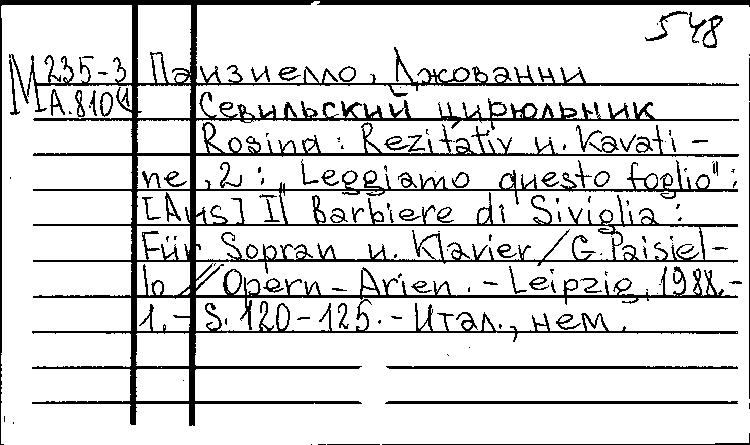 548
М 235-3 Паизиелло, Джованни
А.810(1) Севильский цирюльник
Rosina: Rezitativ u. Kavati-
ne, 2: „Leggiamo questo foglio":
[Aus] Il Barbiere di Siviglia:
Für Sopran u. Klavier / G. Paisiel-
lo // Opern-Arien. - Leipzig, 1988.-
1.- S. 120-125.- Итал., нем.